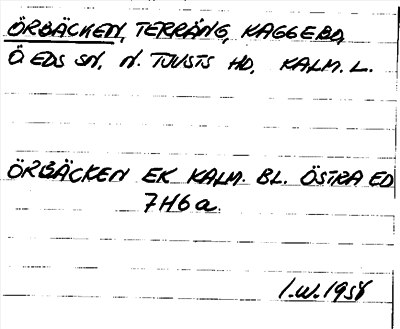 ÖRBÄCKEN, TERRÄNG, KAGGEBO,
Ö EDS SN, N. TJUSTS HD, KALM. L.
ÖRBÄCKEN EK KALM. BL. ÖSTRA ED
7H6a.
I.W. 1958